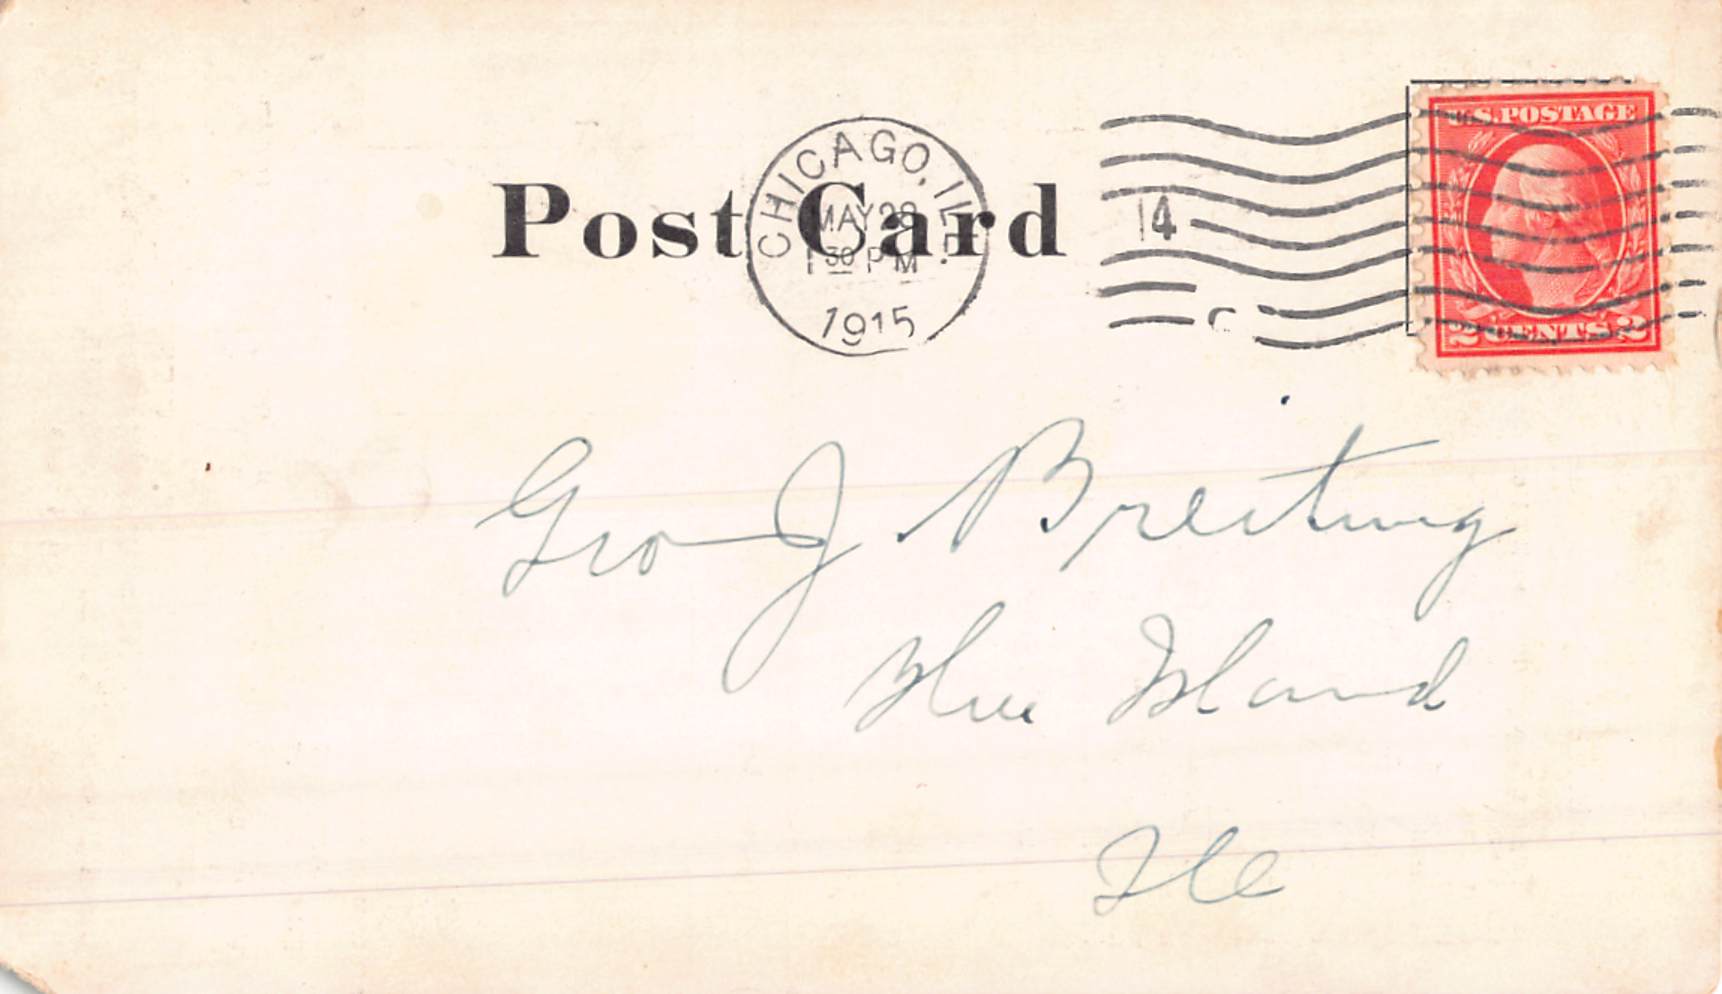 Post Card
CHICAGO, ILL.
MAY 28
1 30 PM
1915
14
C
U.S. POSTAGE
2 CENTS 2
Geo J. Breitung
Blue Island
Ill